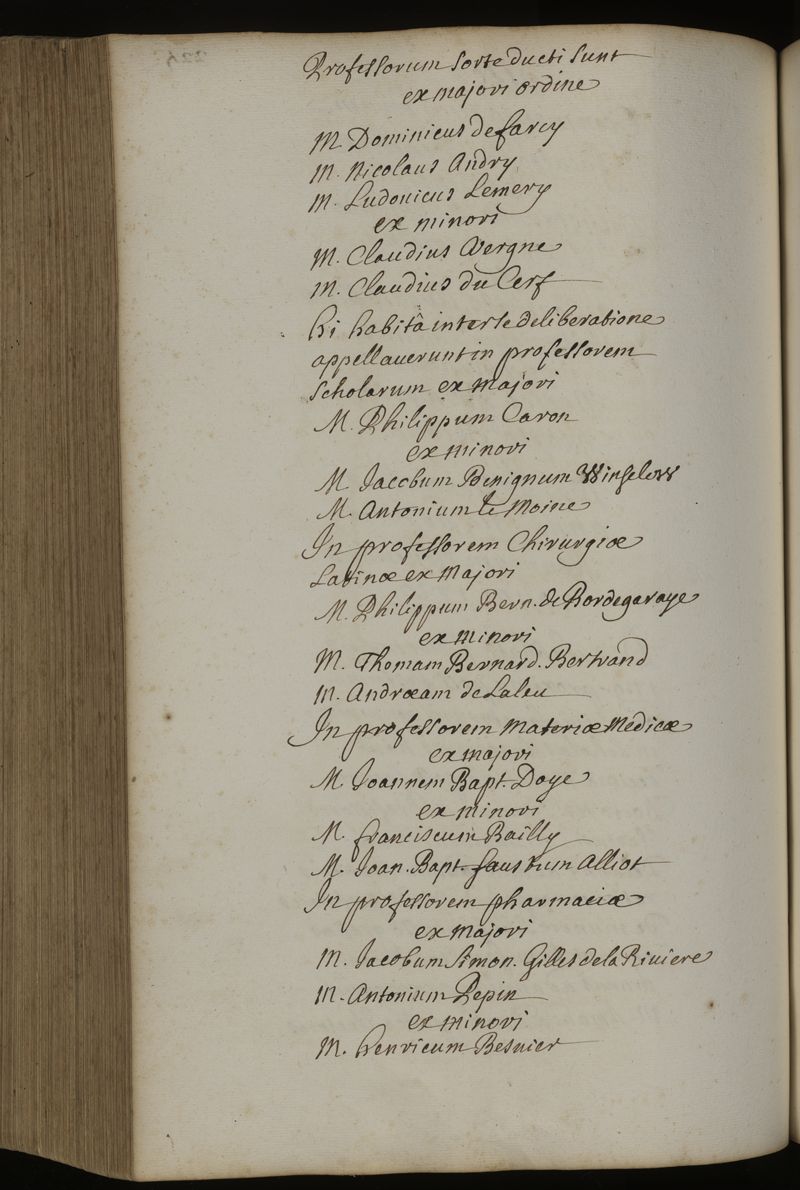 Professorum sorte ducti sunt
ex majori ordine
M. Dominicus de farcy
M. Nicolaus Andry
M. Ludovicus Lemery
ex minori
M. Claudius Vergne
M. Claudius du Cerf
hi habitâ inter se deliberatione
appellaverunt in professorem
scholarum ex majori
M. Philippum Caron
ex minori
M. Jacobum Benignum Winslow
M. Antonium le Moine
In professorem Chirurgiæ
Latinæ ex Majori
M. Philippum Bern. de Bordegaraye
ex minori
M. Thomam Bernard. Bertrand
M. Andræam de Laleu
In professorem Materiæ Medicæ
ex majori
M. Joannem Bapt. Doye
ex minori
M. franciscum Bailly
M. Joan. Bapt. faustum Alliot
In professorem pharmaciæ
ex Majori
M. Jacobum Simon. Gilles de la Riviere
M. Antonium Pepin
ex minori
M. henricum Besnier